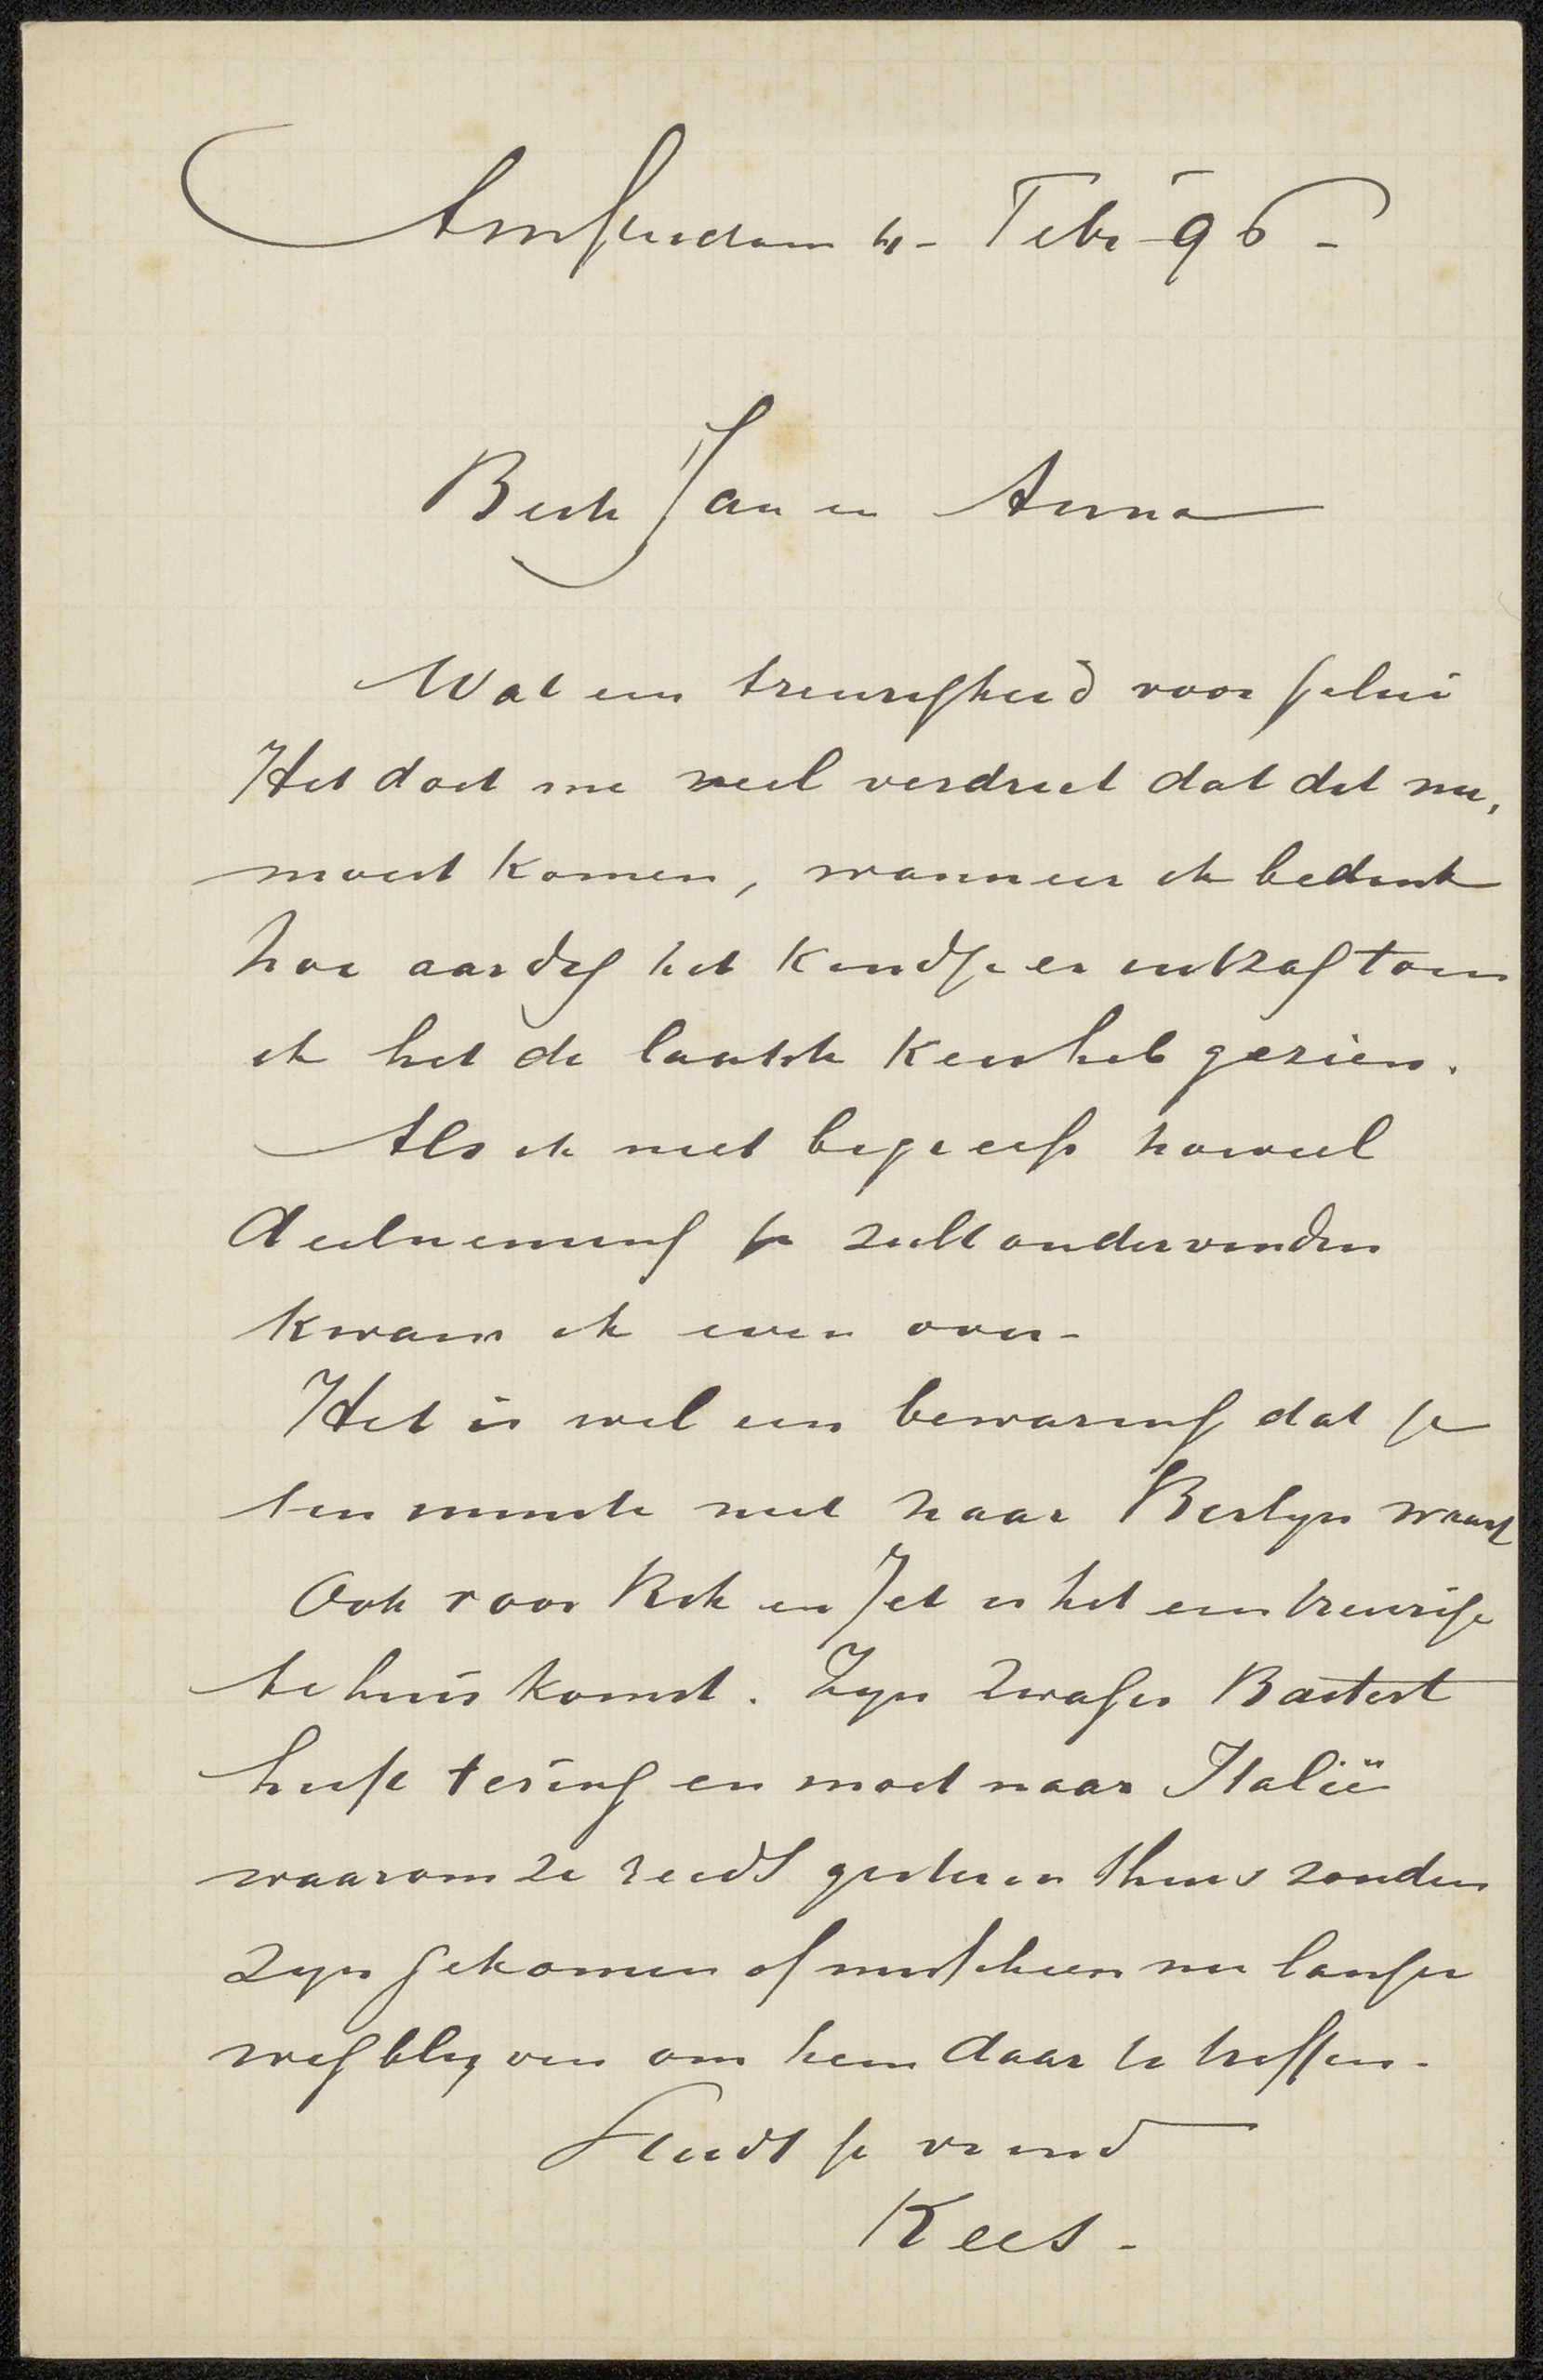 Amsterdam 4 - Febr -96 -
Beste Jan en Anna
Wat een treurigheid voor jelui
Het doet me veel verdriet dat dit nu,
moest komen, wanneer ik bedenk
hoe aardig het kindje er uitzag toen
ik het de laatste keer heb gezien.
Als ik niet begreep hoeveel
deelneming je zult ondervinden
kwam ik even over -
Het is wel een bewaring dat je
ten minste niet naar Berlyn waart
Ook voor Rik en Jet is het een treurige
tehuiskomst. Zyn zwager Bastert
heeft tering en moet naar Italië
waarom ze reeds gisteren thuis zouden
zyn gekomen of misschien nu langer
wegblyven om hem daar te treffen.
Steeds je vriend
Kees -